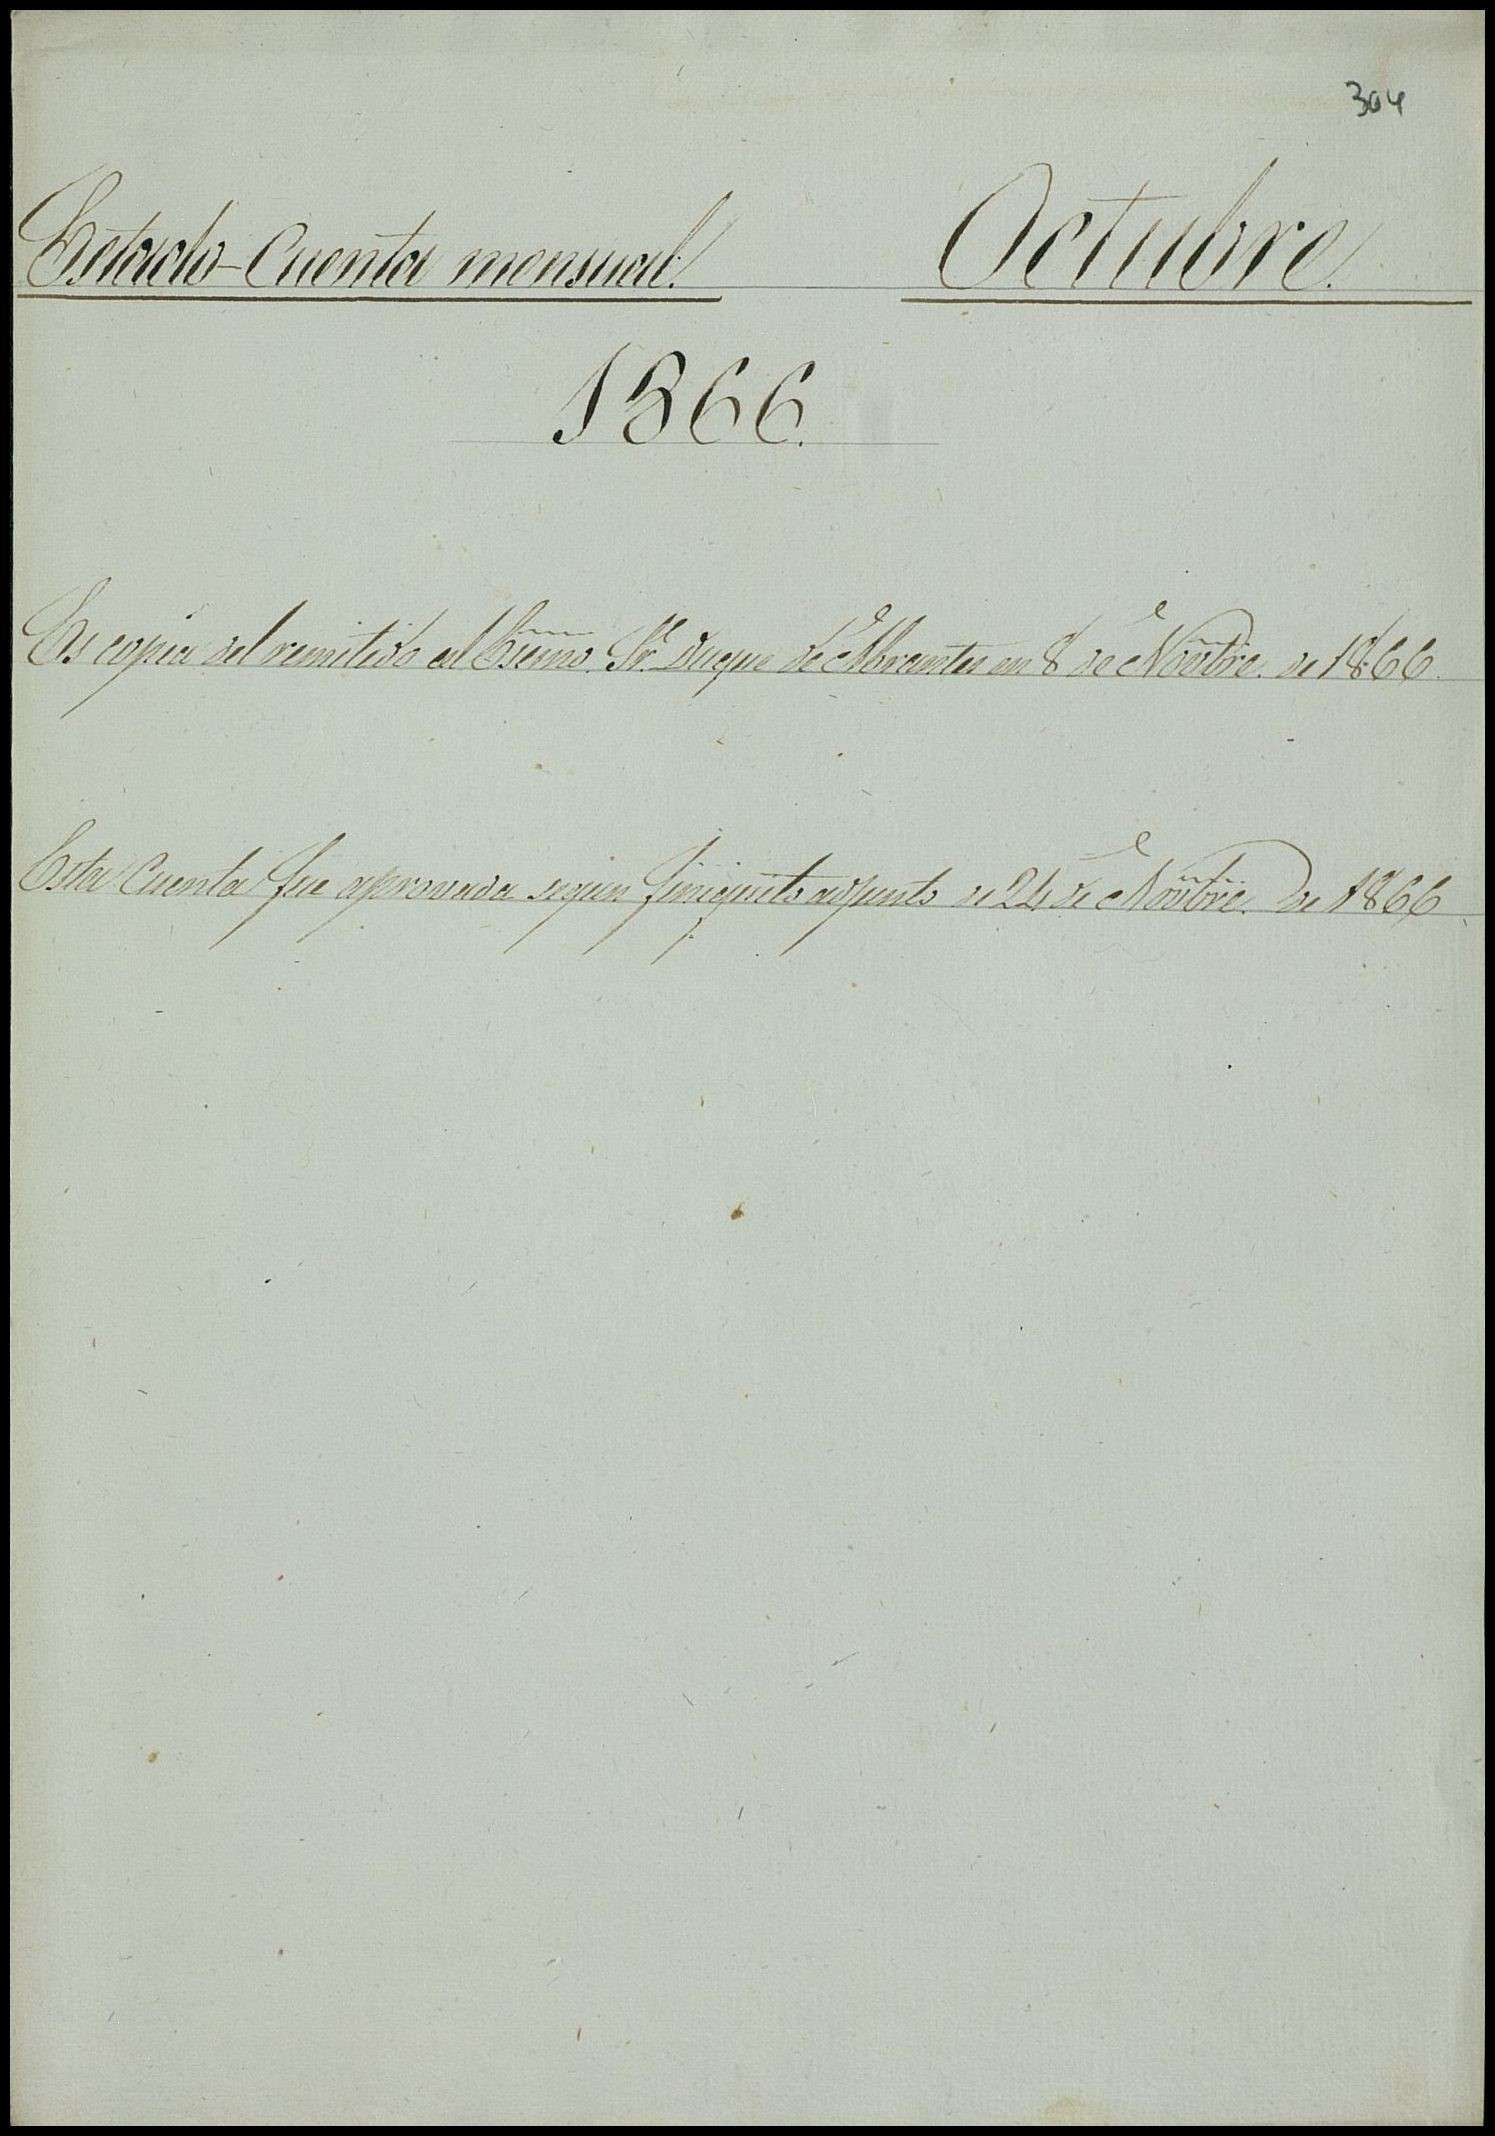 304
Estado-Cuenta mensual. Octubre.
1866.
Es copia del remitido al Escmo. Sr. Duque de Abrantes en 8 de Novbre. de 1866.
Esta Cuenta fue aprovada segun finiquito adjunto de 24 de Novbre. de 1866.